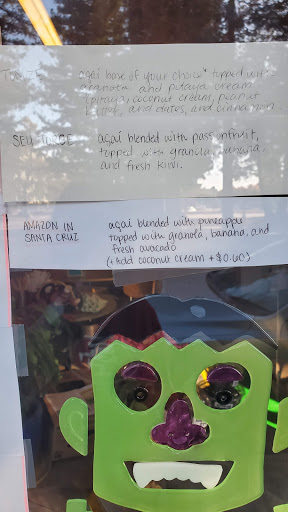 açaí base of your choice* topped with
granola and pitaya cream
(pitaya, coconut cream, peanut
butter, and dates, and cinnamon
açaí blended with passionfruit,
topped with granola, banana,
and fresh kiwi.
AMAZON IN açaí blended with pineapple
SANTA CRUZ topped with granola, banana, and
fresh avocado
(+Add coconut cream +$0.60)